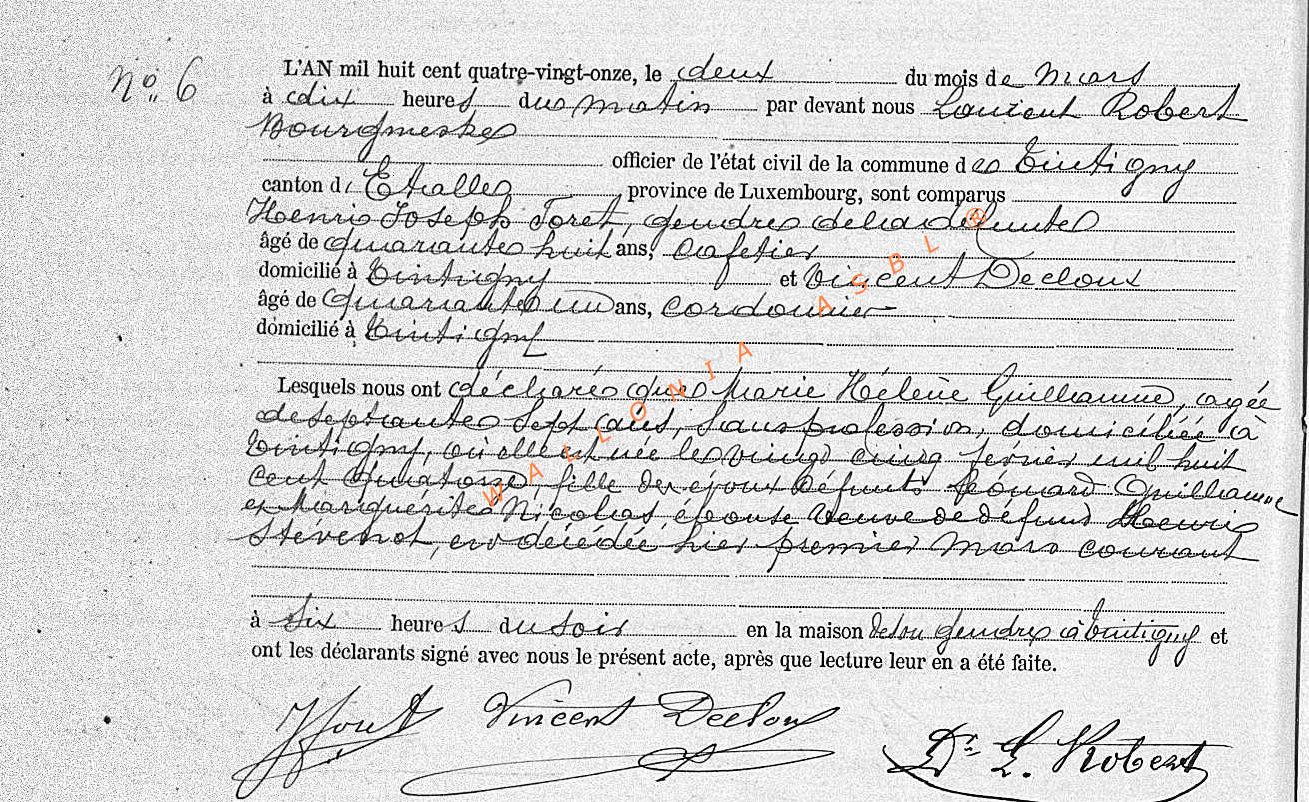 No. 6
L'AN mil huit cent quatre-vingt-onze, le deux du mois de mars
à dix heures du matin par devant nous Laurent Robert
Bourgmestre
officier de l'état civil de la commune de Tintigny
canton d'Etalle, province de Luxembourg, sont comparus
Henri Joseph Foret, gendre de la défunte
âgé de quarante huit ans, cafetier
domicilié à Tintigny et Vincent Decloux
âgé de quarante un ans, cordonnier
domicilié à Tintigny
Lesquels nous ont déclaré que Marie Hélène Guillaume, agée
de septante sept ans, sans profession, domiciliée à
Tintigny, où elle est née le vingt cinq février mil huit
cent quatorze, fille des époux défunts Léonard Guillaume
et Marguérite Nicolas, épouse veuve de défunt Henri
Stévenot, est décédée hier premier mars courant
à six heures du soir en la maison de son gendre à Tintigny et
ont les déclarants signé avec nous le présent acte, après que lecture leur en a été faite.
Vincent Decloux Dr. L. Robert
WALLONIA ASBL ©